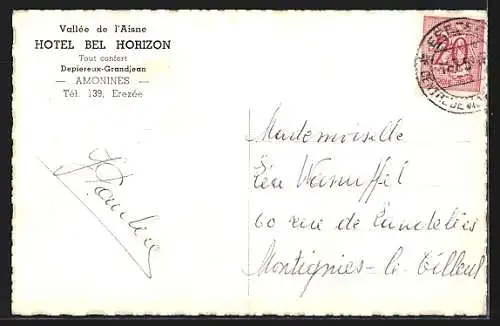 Vallée de l'Aisne
HOTEL BEL HORIZON
Tout confort
Depiereux-Grandjean
— AMONINES —
Tél. 139, Erezée
Mademoiselle
Léa Wanuffel
60 rue de
Montignies-le-Tilleul